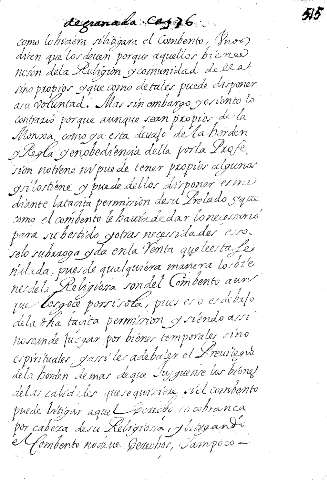 de granada. Cap. 76. 515
como lo hiciera si litigara el Combento, Unos
dicen que los deven porque aquellos bienes
no son de la Religión y comunidad de ellas
sino propios y que como de tales puede disponer
a su voluntad. Mas sin embargo es cierto lo
contrario porque aunque sean propios de la
Monxa, como ya esta devajo de la horden
y Regla y en obediencia della por la Profe
sion no tiene ni puede tener propios algunos
y si los tiene y puede dellos disponer es me
diante la tacita permission de su Prelado, y que
como el combento le havia de dar lo necessario
para su bestido y otras necesidades eso
solo subroga y da en la Renta que le esta se
ñalada, pues de qualquiera manera los bie
nes de la Religiosa son del Combento aun
que los goze por si sola, pues eso es debajo
de la dha tacita permision, y siendo assi
no se an de juzgar por bienes temporales sino
espirituales y assi les a de baler el Previlegio
de la horden de mas de que
de las calidades que se quisiere, si el combento
puede litigar aquel en cobranca
por cabeza de su Religiosa, y litigando
el Combento no deve derechos, Tampoco